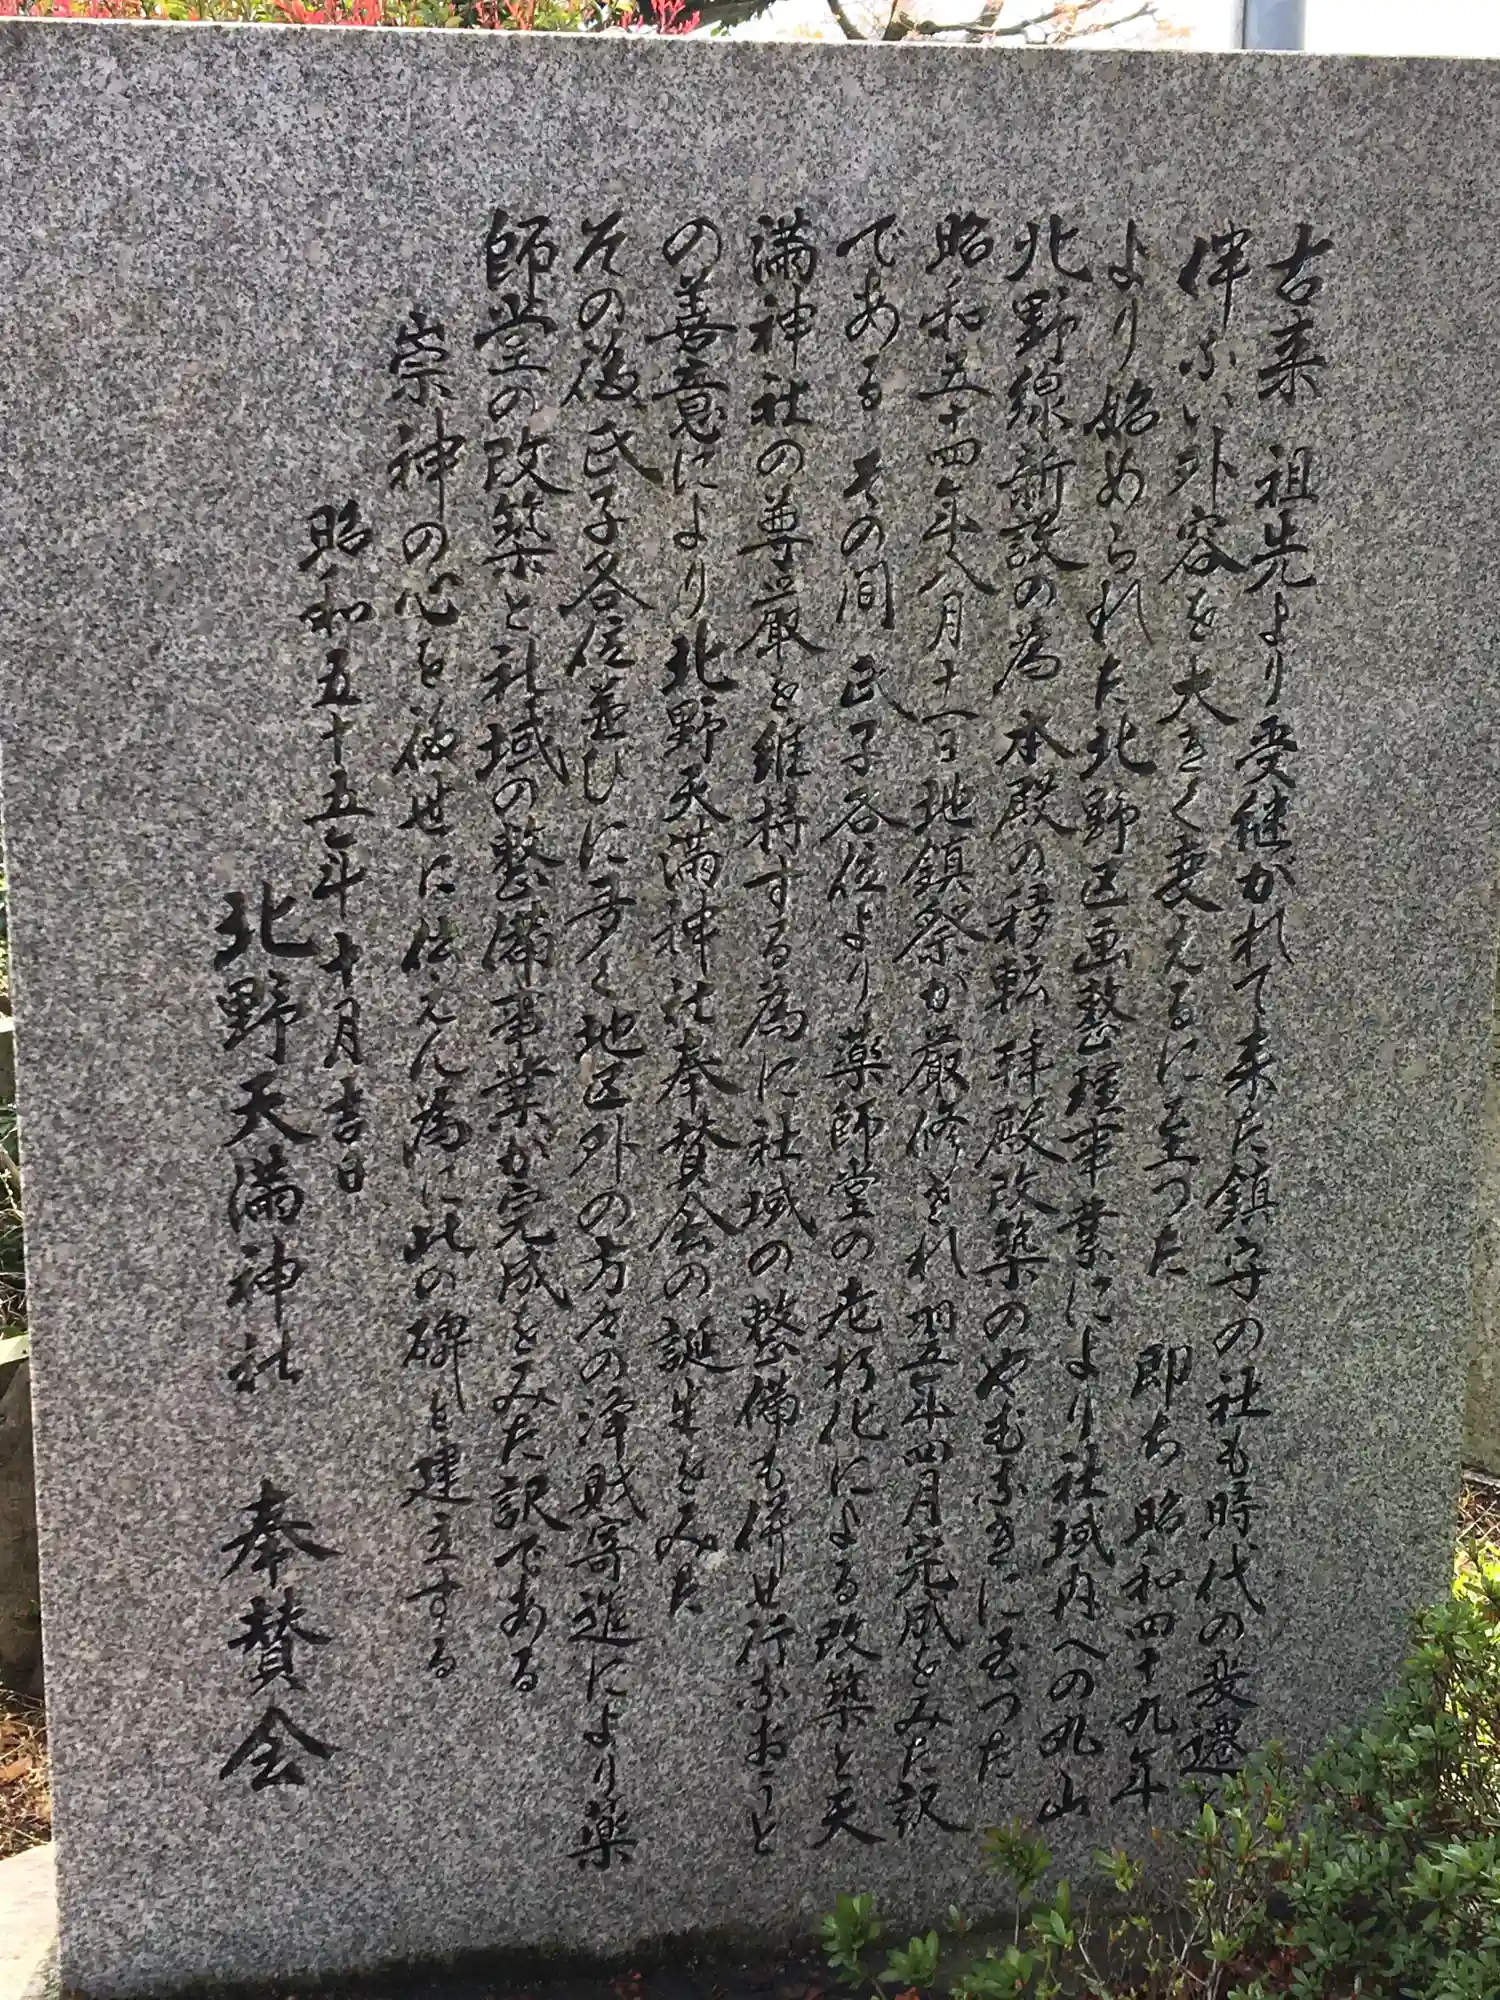 古来 祖先より受継がれて来た鎮守の社も時代の変遷に
伴ない外容を大きく衰えるに至つた 即ち昭和四十九年
より始められた北野区画整理事業により社域内への丸山
北野線新設の為 本殿の移転拝殿改築のやむなきに至つた
昭和五十四年八月十一日地鎮祭が厳修され翌五年四月完成をみた訳
である その間 氏子各位より薬師堂の老朽化による改築と天
満神社の尊厳を維持する為に社域の整備も併せ行なおうと
の善意により北野天満神社奉賛会の誕生をみた
その後氏子各位並びに多く地区外の方々の浄財寄進により薬
師堂の改築と社域の整備事業が完成をみた訳である
崇神の心を後世に伝えん為に此の碑を建立する
昭和五十五年十月吉日
北野天満神社 奉賛会